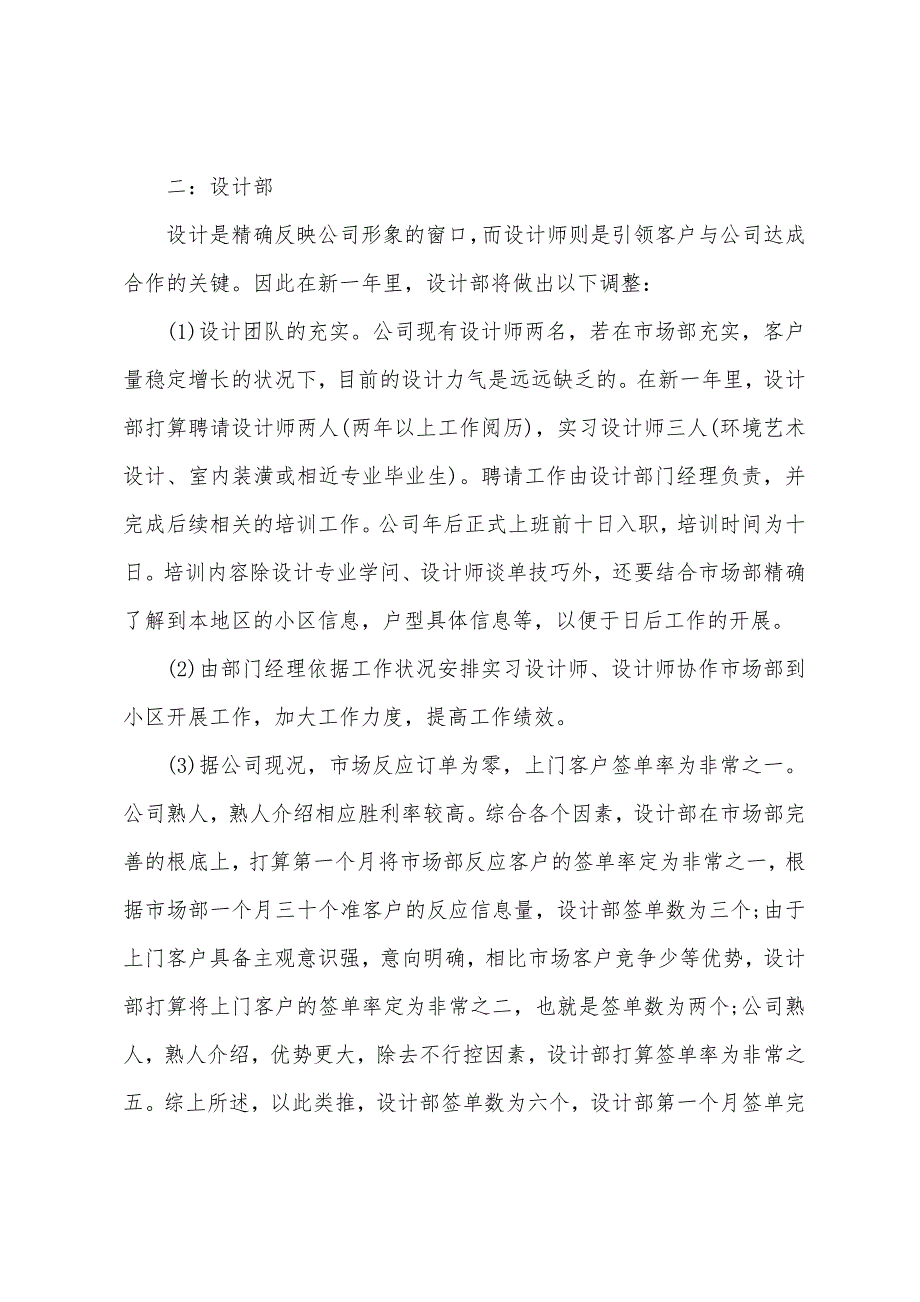 二：设计部
设计是精确反映公司形象的窗口，而设计师则是引领客户与公司达成
合作的关键。因此在新一年里，设计部将做出以下调整：
(1)设计团队的充实。公司现有设计师两名，若在市场部充实，客户
量稳定增长的状况下，目前的设计力气是远远缺乏的。在新一年里，设计
部打算聘请设计师两人(两年以上工作阅历)，实习设计师三人(环境艺术
设计、室内装潢或相近专业毕业生)。聘请工作由设计部门经理负责，并
完成后续相关的培训工作。公司年后正式上班前十日入职，培训时间为十
日。培训内容除设计专业学问、设计师谈单技巧外，还要结合市场部精确
了解到本地区的小区信息，户型具体信息等，以便于日后工作的开展。
(2)由部门经理依据工作状况安排实习设计师、设计师协作市场部到
小区开展工作，加大工作力度，提高工作绩效。
(3)据公司现况，市场反应订单为零，上门客户签单率为非常之一。
公司熟人，熟人介绍相应胜利率较高。综合各个因素，设计部在市场部完
善的根底上，打算第一个月将市场部反应客户的签单率定为非常之一，根
据市场部一个月三十个准客户的反应信息量，设计部签单数为三个;由于
上门客户具备主观意识强，意向明确，相比市场客户竞争少等优势，设计
部打算将上门客户的签单率定为非常之二，也就是签单数为两个;公司熟
人，熟人介绍，优势更大，除去不行控因素，设计部打算签单率为非常之
五。综上所述，以此类推，设计部签单数为六个，设计部第一个月签单完